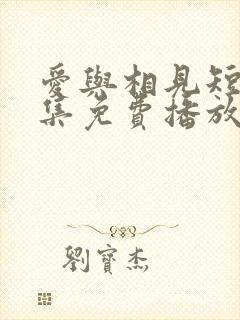 愛與相見短
集免費播放
劉寶杰